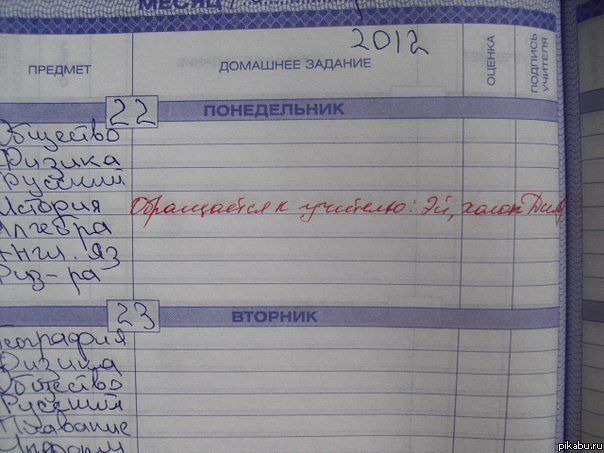 МЕСЯЦ /
2012
ПРЕДМЕТ
ДОМАШНЕЕ ЗАДАНИЕ
ОЦЕНКА
ПОДПИСЬ УЧИТЕЛЯ
22 ПОНЕДЕЛЬНИК
Общество
Физика
Русский
История Обращается к учителю: Эй, холоп
Алгебра
Англ. яз
Физ-ра
23 ВТОРНИК
География
Физика
Общество
Русский
Плавание
Информ
pikabu.ru